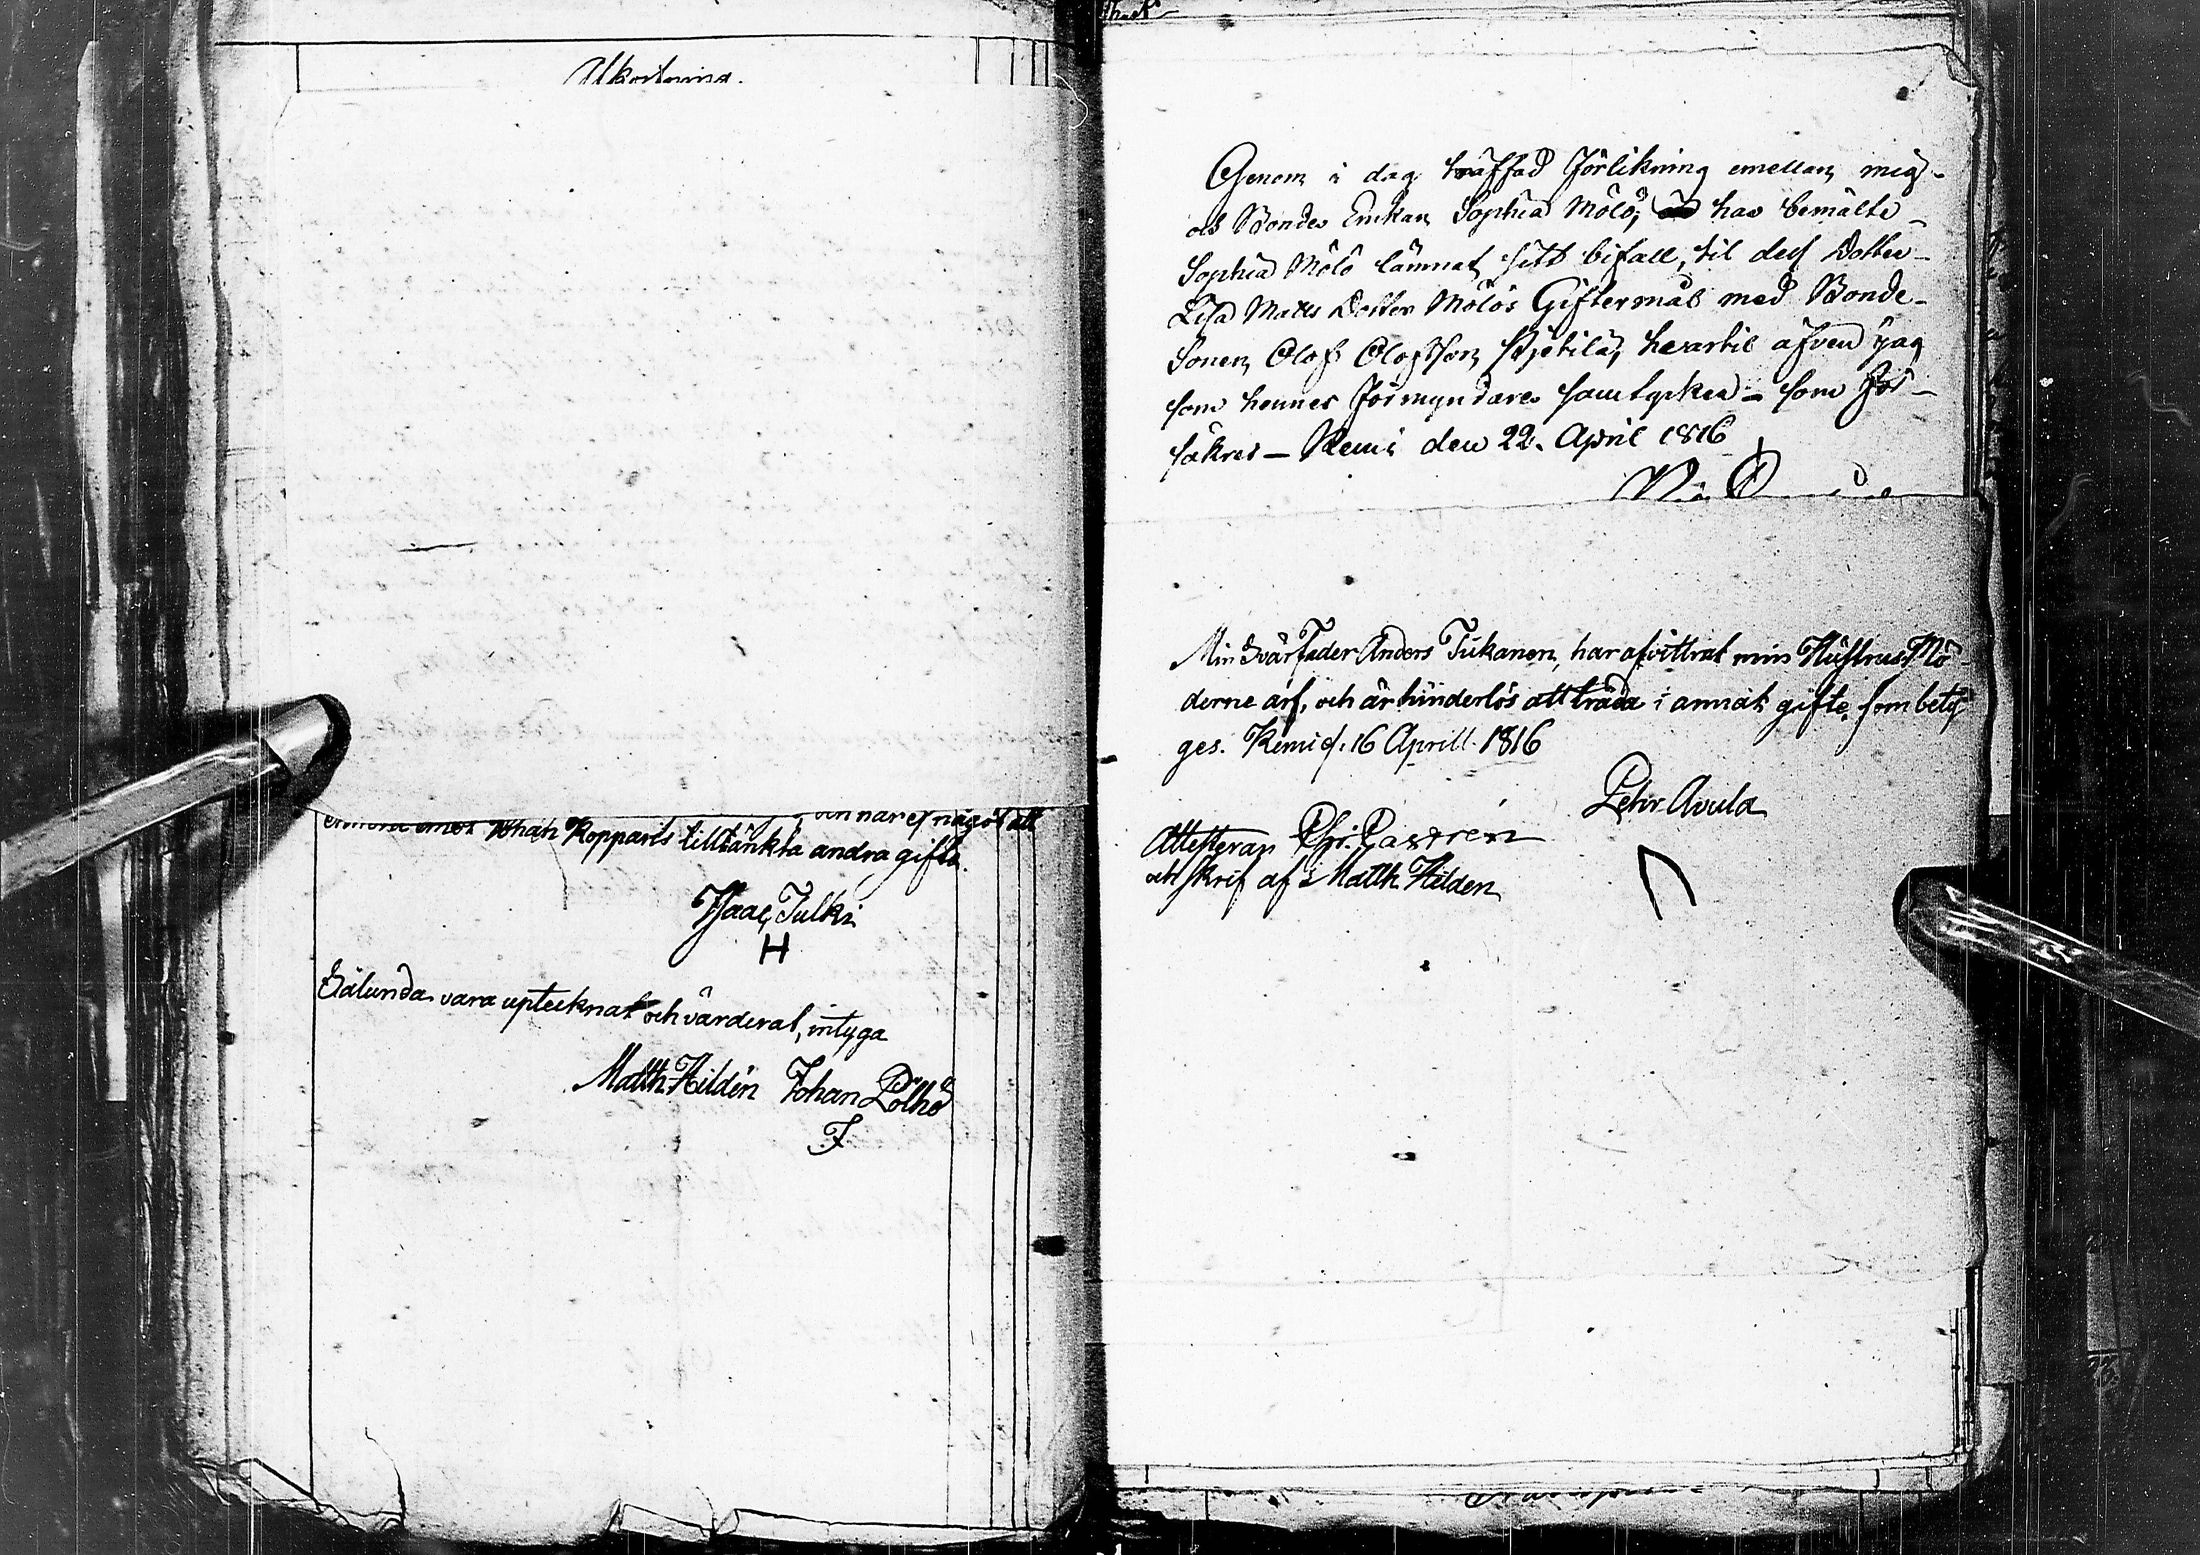 Utkortning.
Johan Kopparts tilltänkta andra gifte.
Isaac Julki
H
Sålunda vara uptecknat och värderat, intyga
Matth. Hildén Johan Pölhö
J
Genom i dag träffad Förlikning emellan mig
ob Bonde Enkan Sophia Mölö, har bemälte
Sophia Mölö lämnat sitt bifall, til dess Dotter
Lisa Matts Dotter Mölös Giftermål med Bonde
Sonen Olof Olofsson Kjetilä, hvartil äfven jag
som hennes Förmyndare samtycker som För-
säkres – Kemi den 22. April 1816
Min Svärfader Anders Tukanen, har afvittrat min Hustrus Mö-
derne arf, och är hinderlös att träda i annat gifte, som bety-
ges. Kemi d. 16 Aprill 1816
Pehr Avula
Attesteran Chr. Castrén
och skrif af Matth Hilden